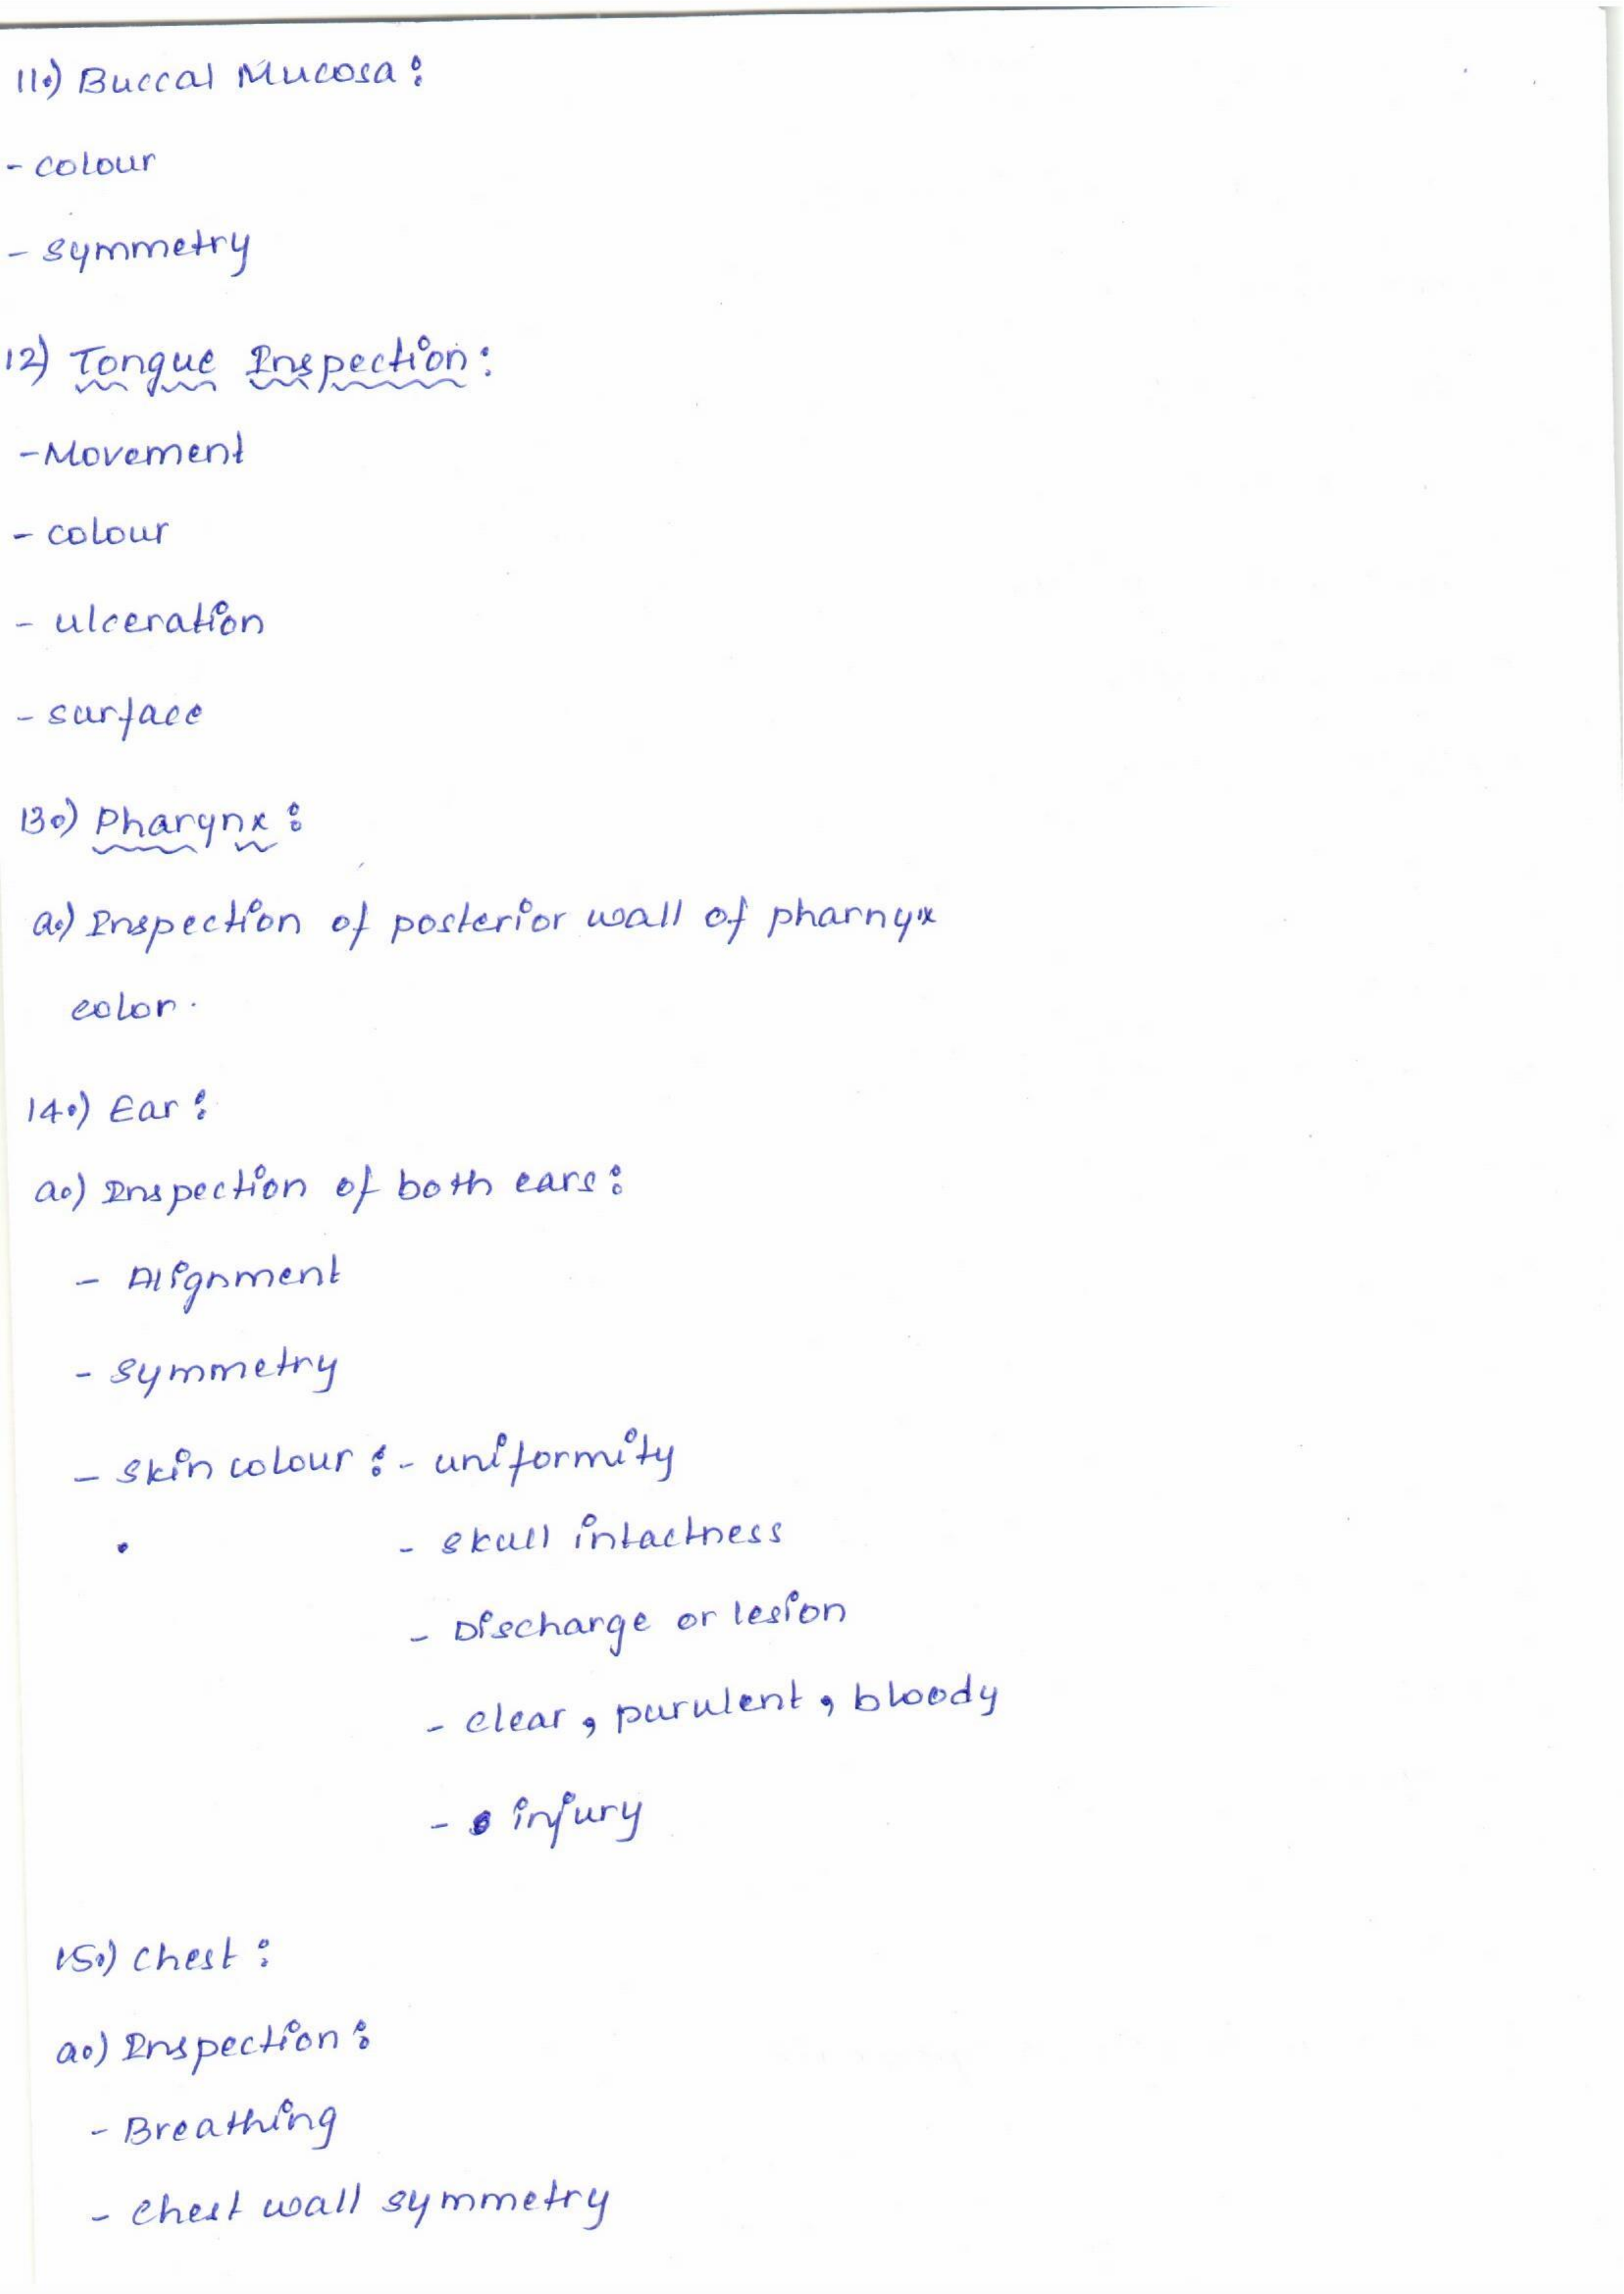 11.) Buccal Mucosa :
- colour
- symmetry
12) Tongue Inspection :
- Movement
- colour
- ulceration
- surface
13.) Pharynx :
a.) Inspection of posterior wall of pharnyx
color.
14.) Ear :
a.) Inspection of both ears :
- Alignment
- symmetry
- skin colour : - uniformity
- skull intactness
- Discharge or lesion
- clear, purulent, bloody
- injury
15.) Chest :
a.) Inspection :
- Breathing
- chest wall symmetry